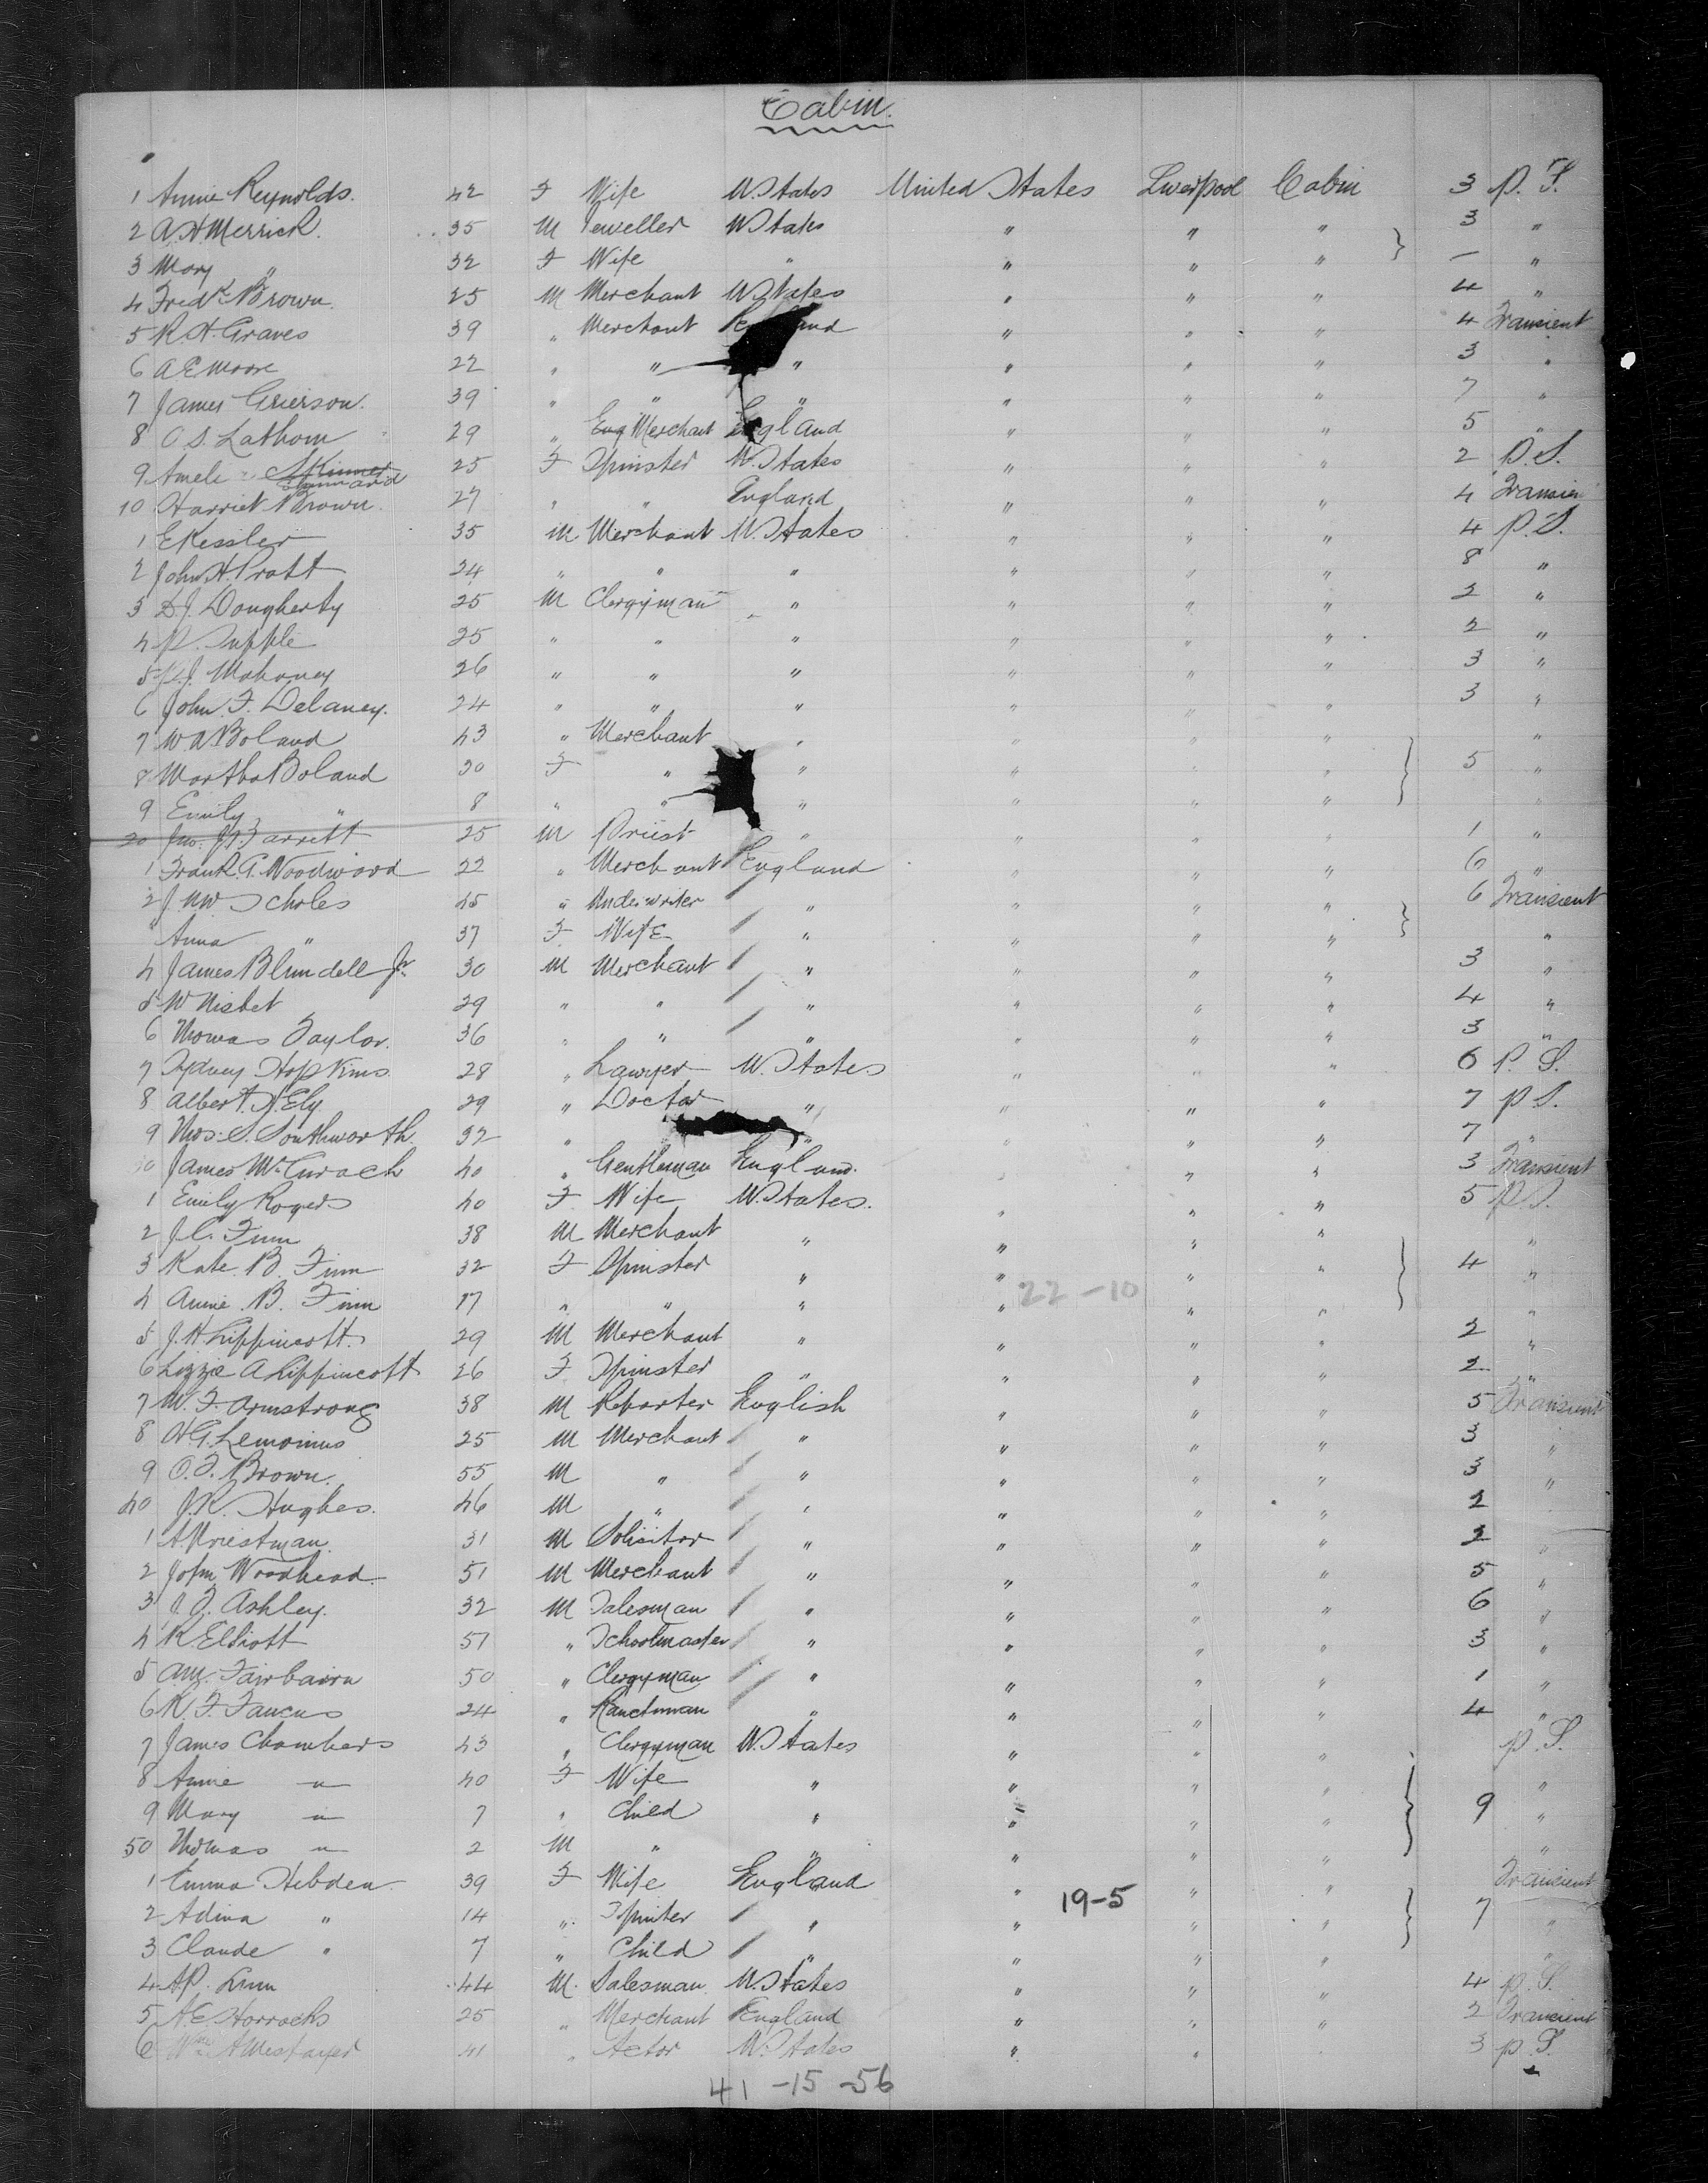 Cabin.
1 Annie Reynolds. 42 F Wife U.States United States Liverpool Cabin 3 P.S.
2 A H Merrick. 35 M Jeweller U States " " " 3 "
3 Mary " 32 F Wife " " " " — "
4 Fredk Brown. 25 M Merchant U States " " " 4 "
5 R.H. Graves 39 " Merchant " " " 4 Transient
6 A E Moore 22 " " " " " " 3 "
7 James Grierson. 39 " " " " " " 7 "
8 C.S. Lathom 29 " Eng Merchant England " " " 5 "
9 Skinner 25 F Spinster U.States " " " 2 P.S.
10 Harriet Brown. 27 " " England " " " 4
1 E Kessler 35 M Merchant U.States " " " 4 P.S.
2 John H. Pratt 24 " " " " " " 8 "
3 D.J. Dougherty 25 M Clergyman " " " " 2 "
4 P. Supple 25 " " " " " " 2 "
5 P.J. Mahoney 26 " " " " " " 3 "
6 John F. Delaney. 24 " " " " " " 3 "
7 W A Boland 43 " Merchant " " " " "
8 Martha Boland 30 F " " " " " 5 "
9 Emily " 8 " " " " " " "
20 25 M Priest " " " " 1 "
1 Frank G. Woodward 22 " Merchant England " " " 6 "
2 J. Scholes 45 " Underwriter " " " " 6 Transient
Anna " 37 F Wife " " " " "
4 James Blundell Jr. 30 M Merchant " " " " 3 "
5 W Nisbet 29 " " " " " " 4 "
6 Thomas Taylor. 36 " " " " " " 3 "
7 Sydney Hopkins 28 " Lawyer U.States " " " 6 P.S.
8 Albert H. Ely 29 " Doctor " " " " 7 P.S.
9 Thos. S. Southworth. 32 " " " " " 7 "
30 James McCurach 40 " Gentleman England. " " " 3 Transient
1 Emily Rogers 40 F Wife U.States. " " " 5 P.S.
2 J.C. Finn 38 M Merchant " " " " "
3 Kate. B. Finn 32 F Spinster " " " " 4 "
22-10
4 Annie. B. Finn 17 " " " " " " "
5 J.H. Lippincott. 29 M Merchant " " " " 2 "
6 Lizzie A Lippincott 26 F Spinster " " " " 2 "
7 W.F. Armstrong 38 M Reporter English " " " 5 Transient
8 H.G. Lemoinus 25 M Merchant " " " " 3 "
9 O.F. Brown. 55 M " " " " " 3 "
40 J.R. Hughes. 46 M " " " " " 2
1 A. Priestman. 31 M Solicitor " " " " 2 "
2 John Woodhead. 51 M Merchant " " " " 5 "
3 J.F. Ashley. 32 M Salesman " " " " 6 "
4 R Elliott 57 " Schoolmaster " " " " 3 "
5 A.M. Fairbairn 50 " Clergyman " " " " 1 "
6 R.F. Faucus 24 " Ranchman " " " " 4 "
7 James Chambers 43 " Clergyman U.States " " " P.S.
8 Annie " 40 F Wife " " " " "
9 Mary " 7 " Child " " " " 9 "
50 Thomas " 2 M " " " " " "
1 Emma Hebden 39 F Wife England " " " Transient
19-5
2 Adina " 14 " Spinster " " " " 7 "
3 Claude " 7 " Child " " " " "
4 A.P. Lunn 44 M. Salesman U.States " " " 4 P.S.
5 A.E. Horrocks 25 " Merchant England " " " 2 Transient
6 Wm A Mestayer 41 " Actor U.States " " 3 P.S.
41-15-56